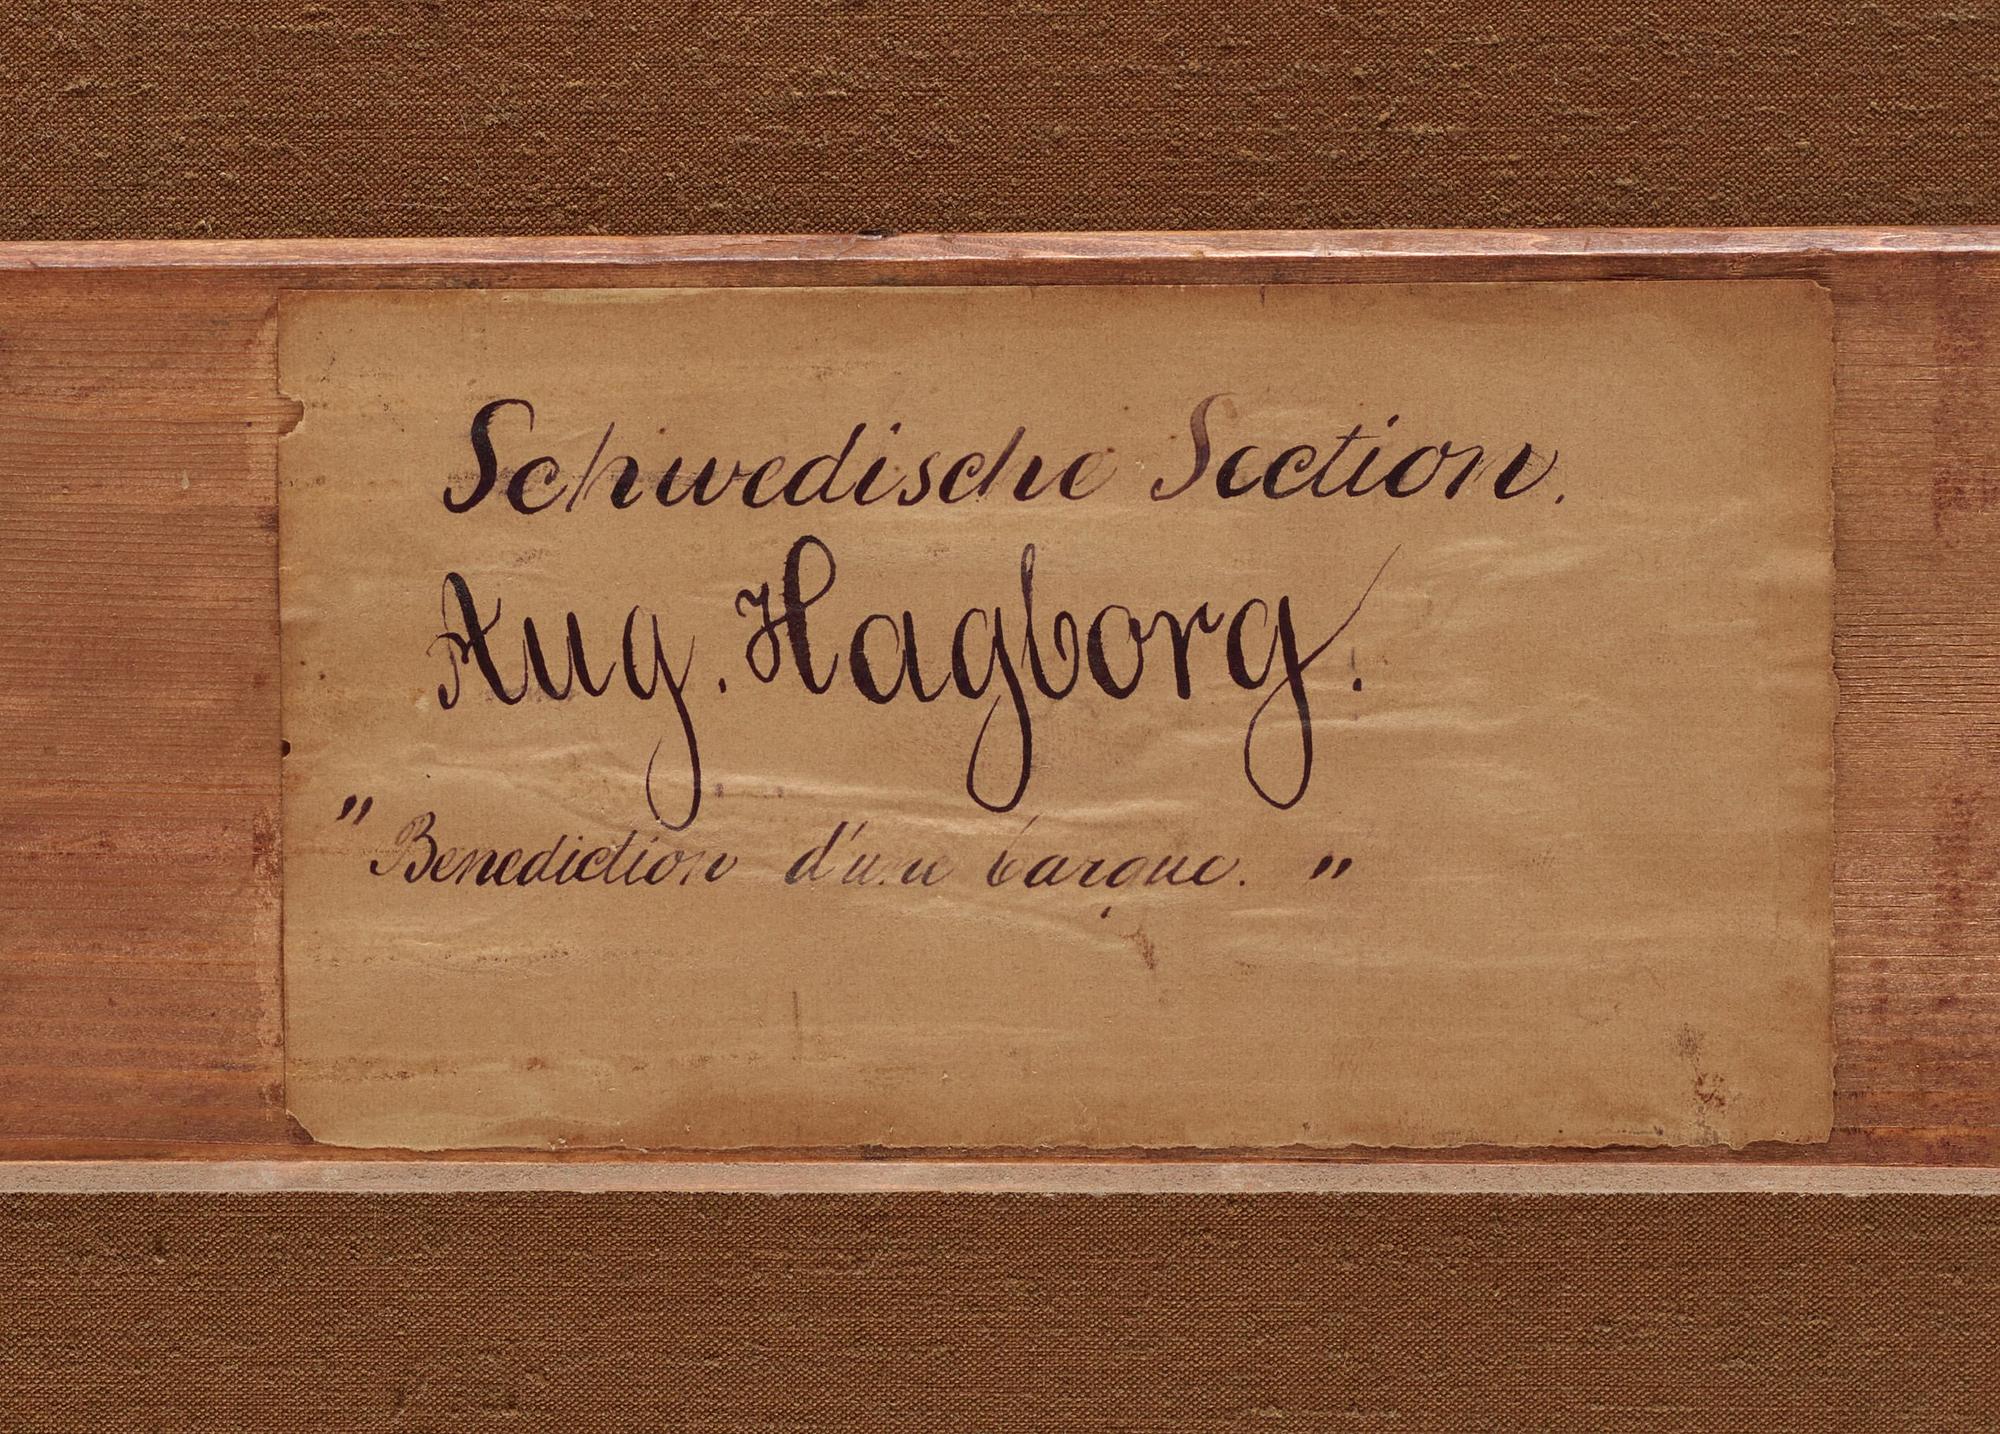 Schwedische Section.
Aug. Hagborg.
"Benediction d'une barque."